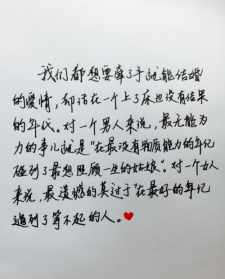 我们都想要牵了手就能结婚
的爱情，却活在一个上了床也没有结果
的年代。对一个男人来说，最无能为
力的事儿就是“在最没有物质能力的年纪
碰到了最想照顾一生的姑娘”。对一个女人
来说，最遗憾的莫过于“在最好的年纪
遇到了等不起的人。❤